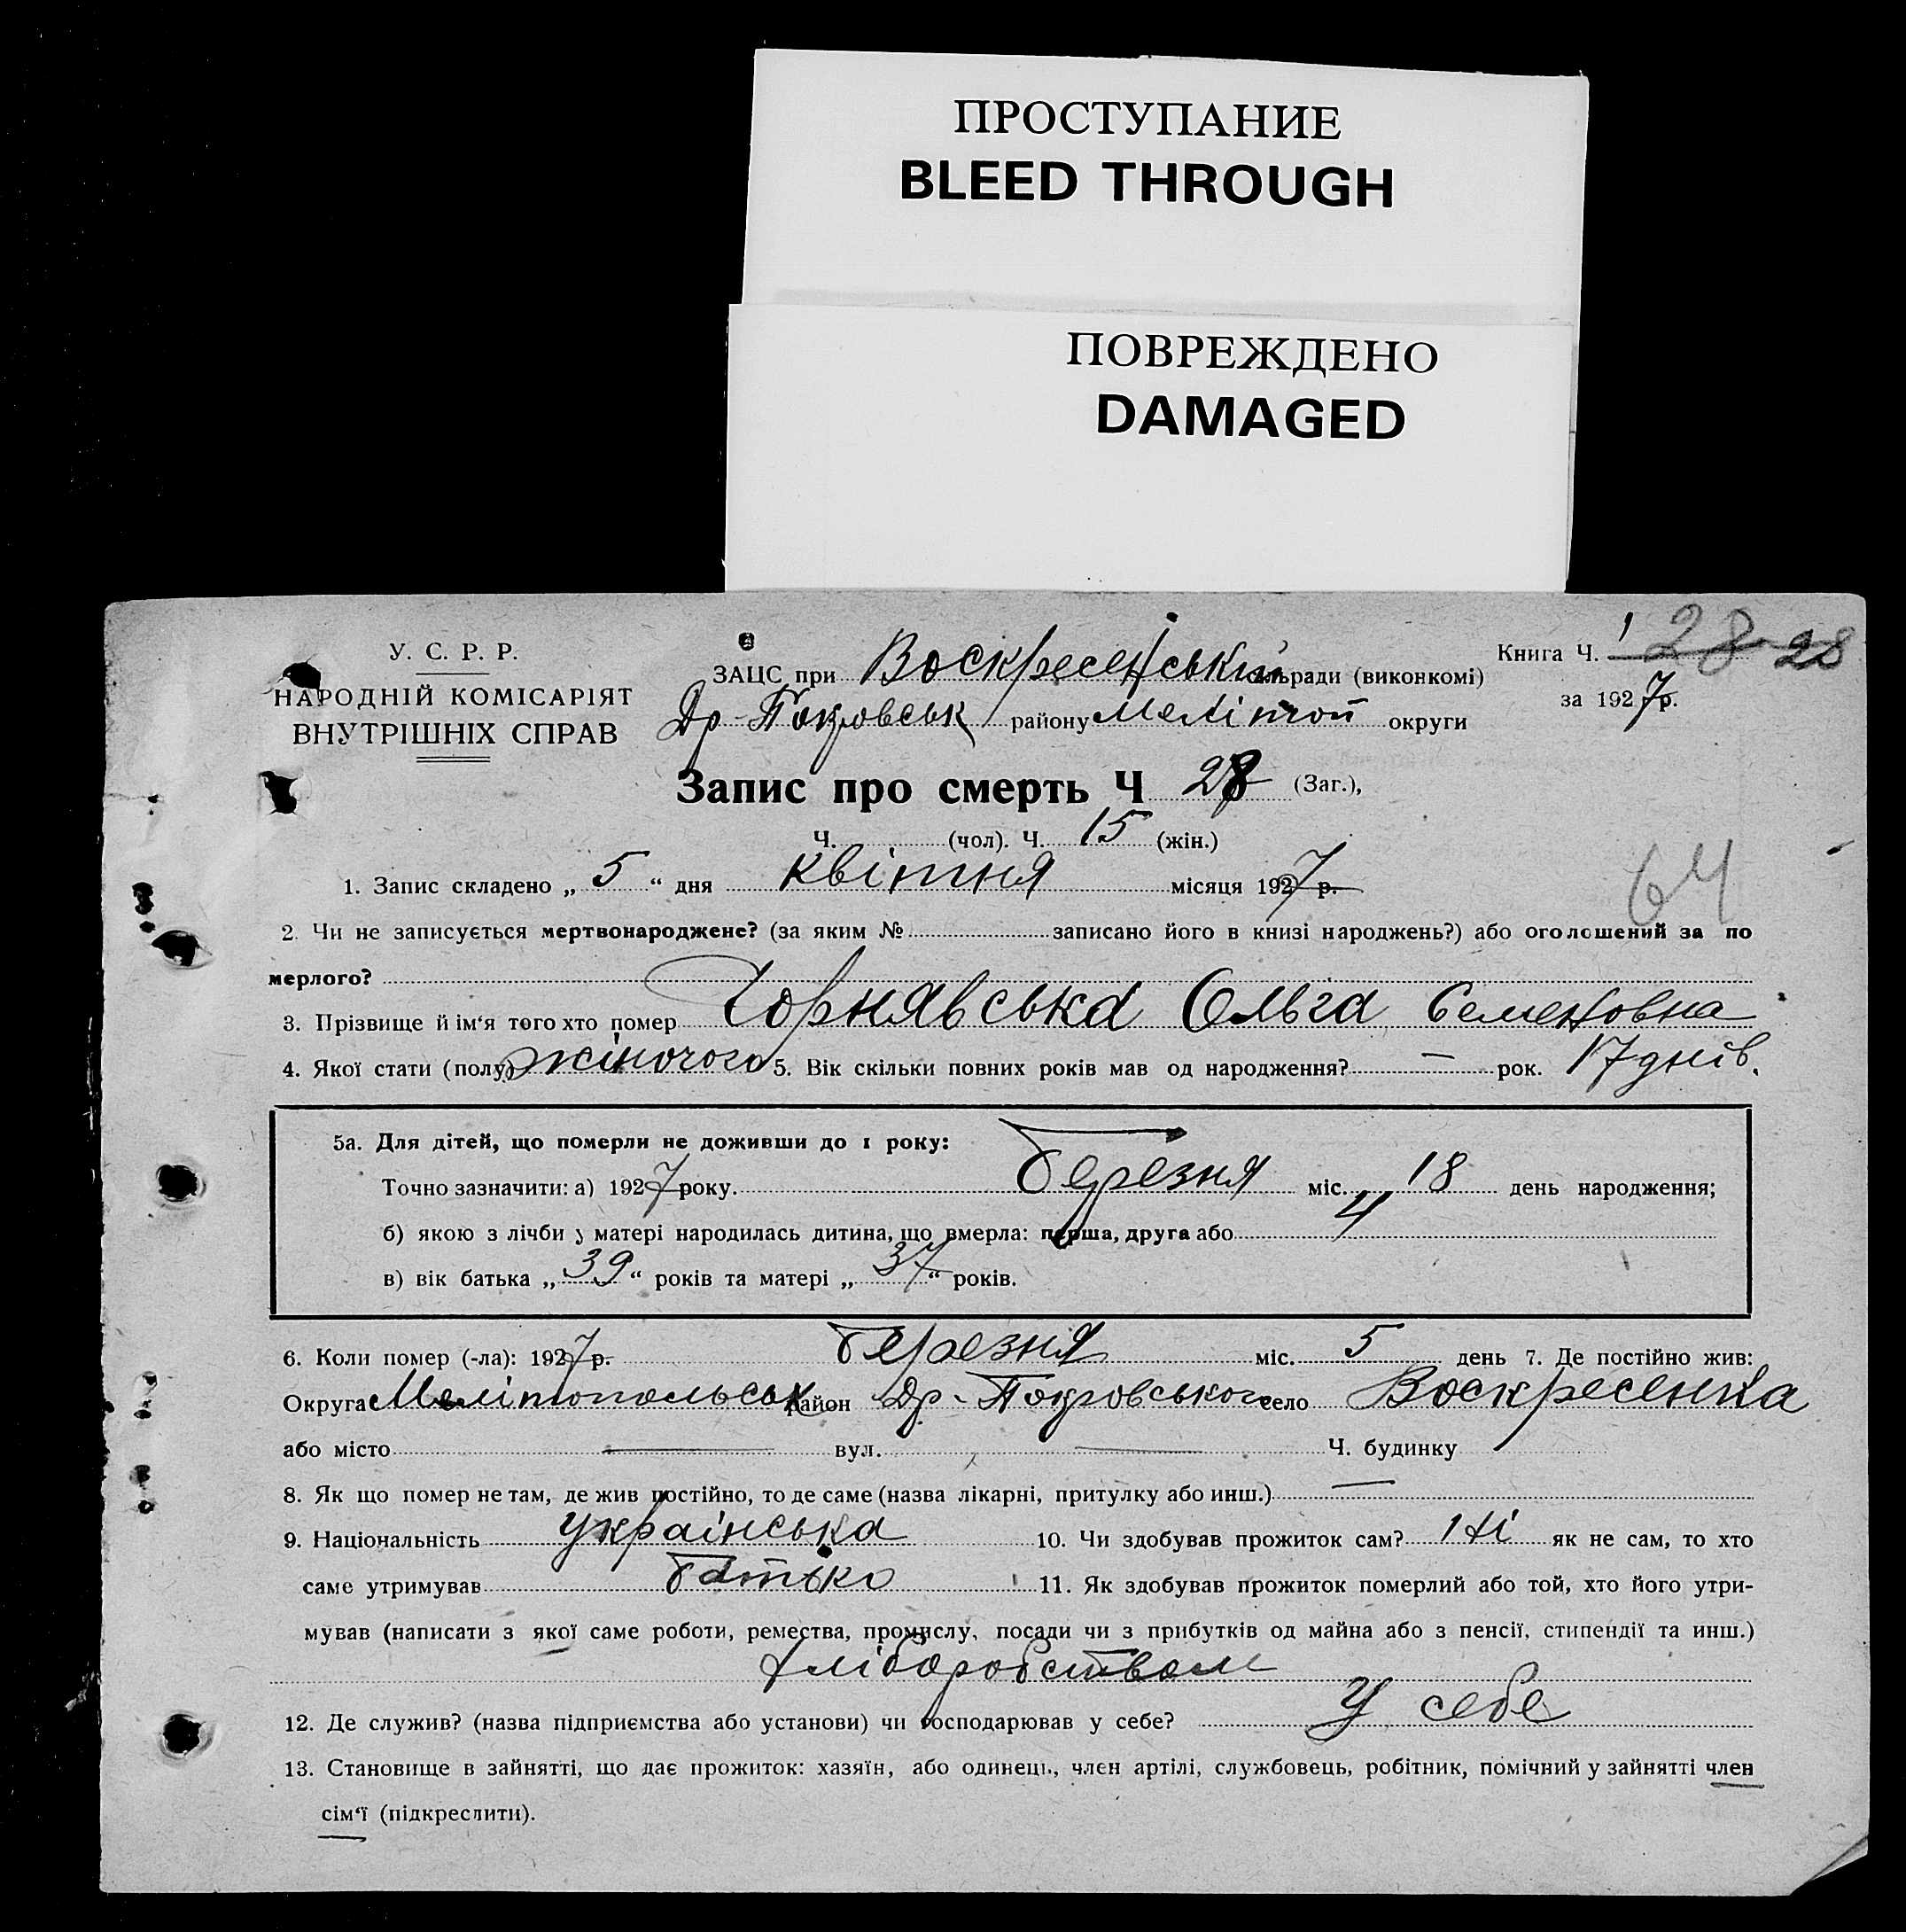 ПРОСТУПАНИЕ
BLEED THROUGH
ПОВРЕЖДЕНО
DAMAGED
У. С. Р. Р.
НАРОДНІЙ КОМІСАРІЯТ
ВНУТРІШНІХ СПРАВ
ЗАЦС при Воскресенській сільради (виконкомі)
Др-Покровськ району Мелітоп округи
Книга Ч. 1 28 28
за 1927 р.
Запис про смерть Ч 28 (Заг.),
Ч. (чол). Ч. 15 (жін.)
1. Запис складено „ 5 “ дня квітня місяця 1927 р.
64
2. Чи не записується мертвонароджене? (за яким № записано його в книзі народжень?) або оголошений за по
мерлого?
3. Прізвище й ім‘я того хто помер Чорнявська Ольга Семеновна
4. Якої стати (полу) жіночого 5. Вік скільки повних років мав од народження? — рок. 17 днів.
5а. Для дітей, що померли не доживши до 1 року:
Точно зазначити: а) 1927 року. Березня міс. 18 день народження;
б) якою з лічби у матері народилась дитина, що вмерла: перша, друга або 4
в) вік батька „ 39 “ років та матері „ 37 “ років.
6. Коли помер (-ла): 1927 р. Березня міс. 5 день 7. Де постійно жив:
Округа Мелітопольськ район Др-Покровського село Воскресенка
або місто — вул. — Ч. будинку
8. Як що помер не там, де жив постійно, то де саме (назва лікарні, притулку або инш.) —
9. Національність Українська 10. Чи здобував прожиток сам? Ні як не сам, то хто
саме утримував батько 11. Як здобував прожиток померлий або той, хто його утри-
мував (написати з якої саме роботи, ремества, промислу, посади чи з прибутків од майна або з пенсії, стипендії та инш.)
хліборобством
12. Де служив? (назва підприємства або установи) чи господарював у себе? У себе
13. Становище в зайнятті, що дає прожиток: хазяїн, або одинець, член артілі, службовець, робітник, помічний у зайнятті член
сім‘ї (підкреслити).